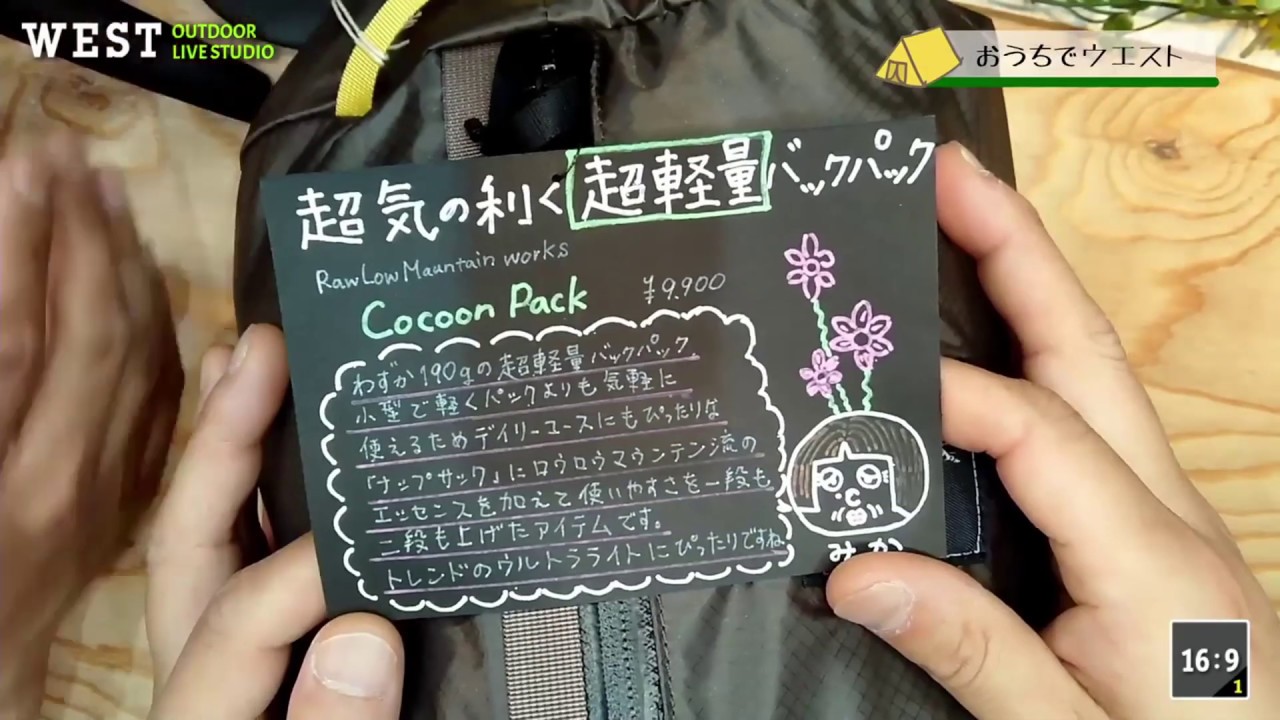 WEST OUTDOOR
LIVE STUDIO
おうちでウエスト
超気の利く超軽量バックパック
RawLow Mauntain works
Cocoon Pack ¥9,900
わずか190gの超軽量バックパック
小型で軽くパックよりも気軽に
使えるためデイリーユースにもぴったりな
「ナップサック」にロウロウマウンテン流の
エッセンスを加えて使いやすさを一段も
二段も上げたアイテムです。
トレンドのウルトラライトにぴったりですね
みか
16:9
1